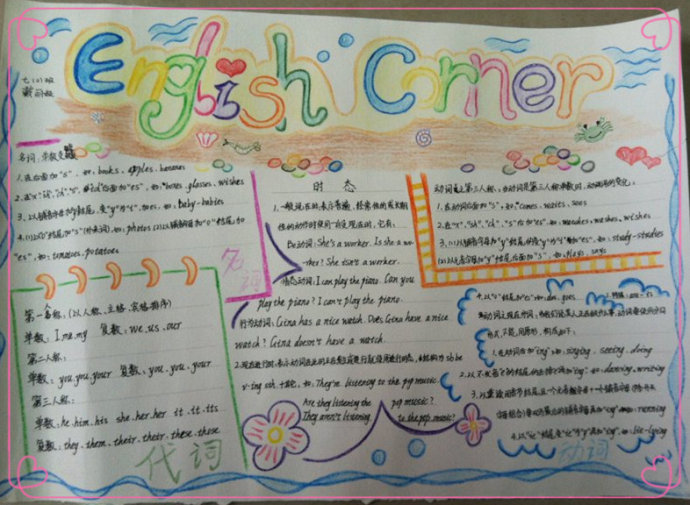 English Corner
七(1)班
名词:单数变
1.在后面加"s",如:books, apples, bananas
2.在"x""ch","s" 后面加"es",如:boxes, glasses, wishes
3.以辅音字母加y结尾,变"y"为"i",加es,如:Baby-babies
4.(1)以"o"结尾加"s"(外来词)如:photos (2)以辅音字母加"o"结尾加
"es",如:tomatoes, potatoes
名词
第一人称:(以人称、主格、宾格排序)
单数:I, me, my 复数:we, us, our
第二人称:
单数:you, your, your 复数:you, you, your
第三人称:
单数:he, him, his she, her, her it, it, its
复数:they, them, their, their, these, those
代词
时态
1.一般现在时:表示普遍、经常性的或长期
性的动作时使用一般现在时,它有:
Be动词:She's a worker. Is she a wo-
rker? She isn't a worker.
情态动词:I can play the piano. Can you
play the piano? I can't play the piano.
行为动词:Gina has a nice watch. Does Gina have a nice
watch? Gina doesn't have a watch.
2.现在进行时:表示动词在此时正在发生或进行就使用进行时态,
v-ing 如:They're listening to the pop music.
Are they listening the pop music?
They aren't listening to the pop music.
动词变第三人称:当动词是第三人称单数时,动词的变化:
1.在动词后面加"s",如:comes, names, sees
2.在"x","sh","ch","s"后加"es",如:watches, washes, wishes
3.(1)以辅音字母加"y"结尾,把变"y"为"i"加"es",如:study-studies
(2)以元音字母加"y"结尾后面加"s",如:plays, says
4.以"o"结尾加"es":do, goes
1.在动词后加"ing",如:singing, seeing, doing
2.以不发音e的结尾的去掉e再加"ing",如:dancing, writing
3.以重读闭音节结尾,且一个元音字母+一个辅音字母
"ing",如:running
4.以"ie"结尾变"ie"为"y"再加"ing",如:lie-lying
动词